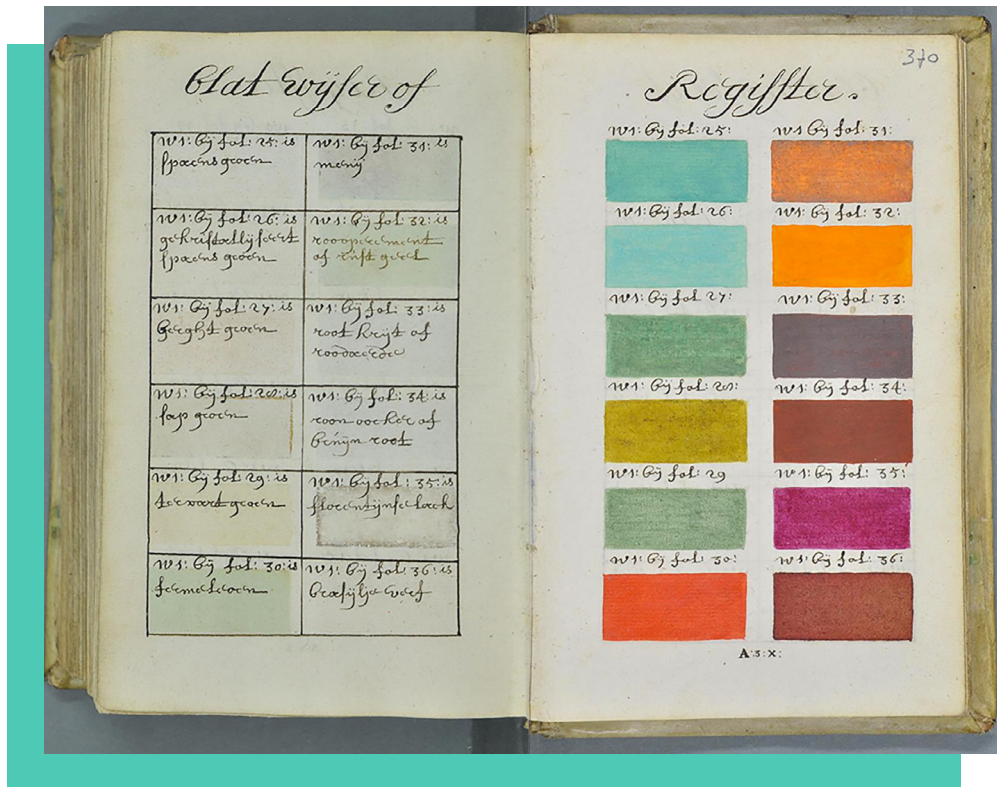 blat wijser of
w1: bij fol: 25: is
spaens groen
w1: bij fol: 31: is
menij
w1: bij fol: 26: is
gekristallijseert
spaens groen
w1: bij fol: 32: is
roooperement
of rust geel
w1: bij fol: 27: is
berght groen
w1: bij fol: 33: is
root krijt of
roodaerde
w1: bij fol: 28: is
sap groen
w1: bij fol: 34: is
roon oocker of
bruijn root
w1: bij fol: 29: is
terwart groen
w1: bij fol: 35: is
florentijnse lack
w1: bij fol: 30: is
fermeloen
w1: bij fol: 36: is
brasijlje verf
370
Regisster.
w1: bij fol: 25:
w1 bij fol: 31:
w1: bij fol: 26:
w1: bij fol: 32:
w1: bij fol: 27:
w1: bij fol: 33:
w1: bij fol: 28:
w1: bij fol: 34:
w1: bij fol: 29
w1: bij fol: 35:
w1: bij fol: 30:
w1: bij fol: 36:
A:5:X: